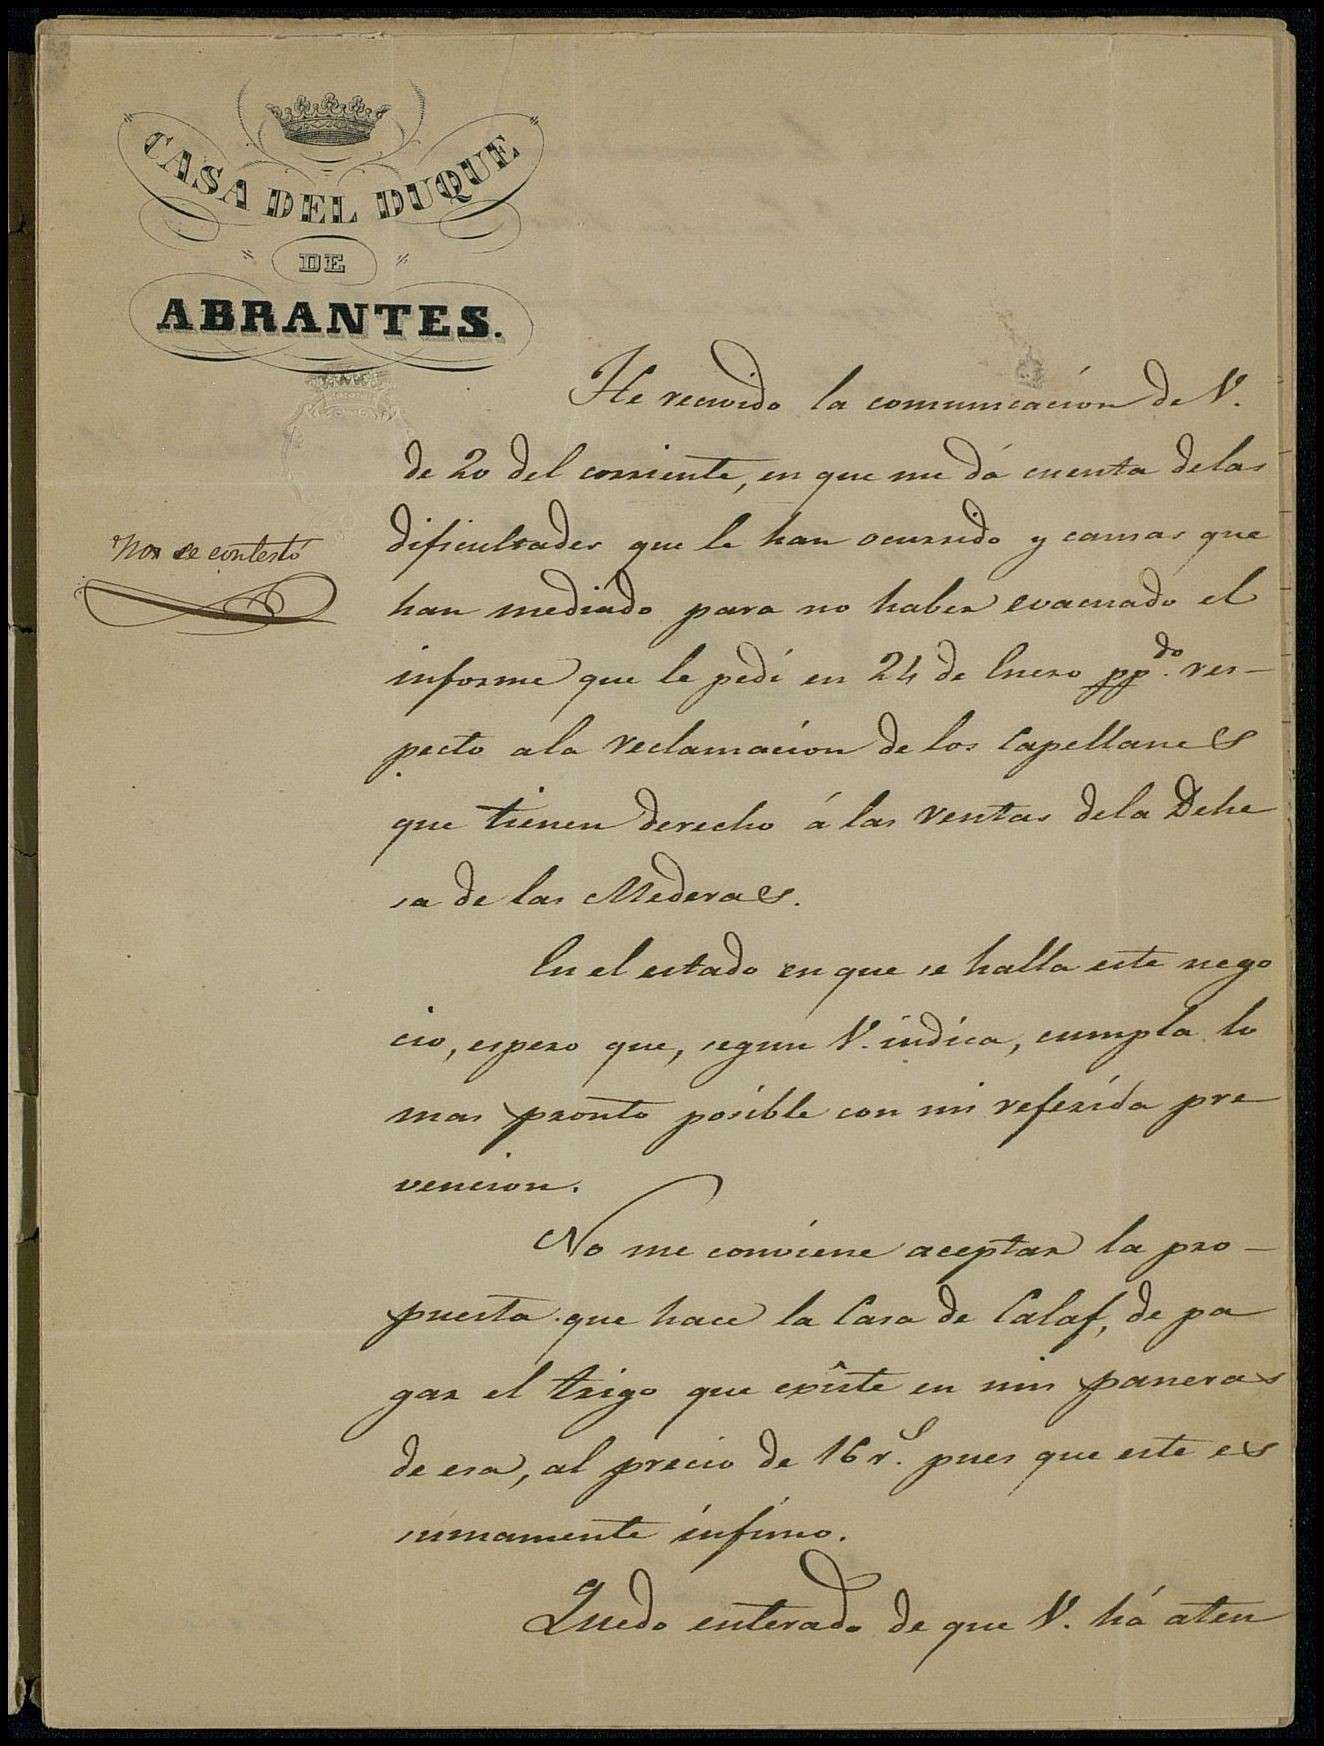 CASA DEL DUQUE
DE
ABRANTES.
He recivido la comunicación de V.
de 20 del corriente, en que me dá cuenta delas
dificultades que le han ocurrido y causas que
han mediado para no haber evacuado el
informe que le pedí en 24 de Enero pp.do res-
pecto ala reclamacion de los Capellanes
que tienen derecho á las ventas dela Dehe
sa de las Mederas.
En el estado en que se halla este nego
cio, espero que, segun V. indica, cumpla lo
mas pronto posible con mi referida pre
vencion.
No me conviene aceptar la pro-
puesta que hace la Casa de Calaf, de pa
gar el trigo que exîste en mis paneras
de esa, al precio de 16 r.s pues que este es
sumamente ínfimo.
Quedo enterado de que V. há aten
se contestó